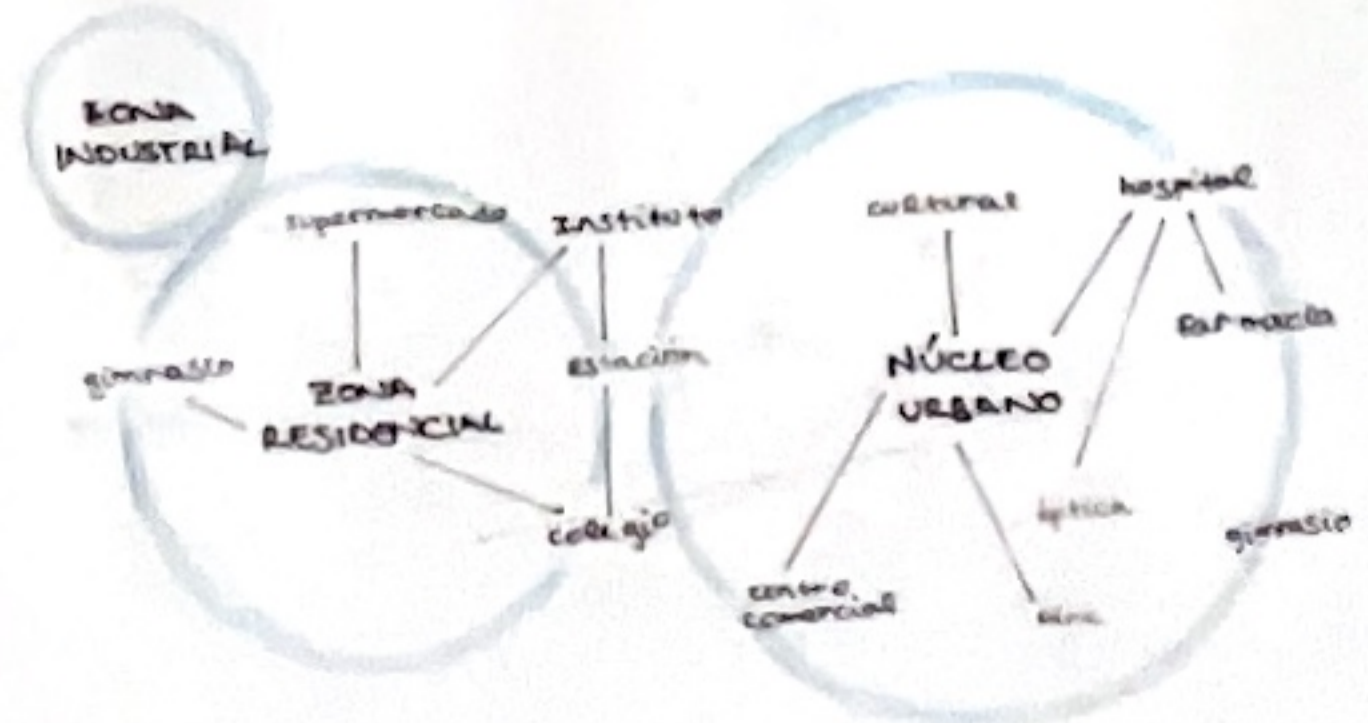 ZONA
INDUSTRIAL
supermercado
Instituto
cultural
hospital
farmacia
gimnasio
estación
NÚCLEO
URBANO
ZONA
RESIDENCIAL
colegio
óptica
gimnasio
centro
comercial
cine